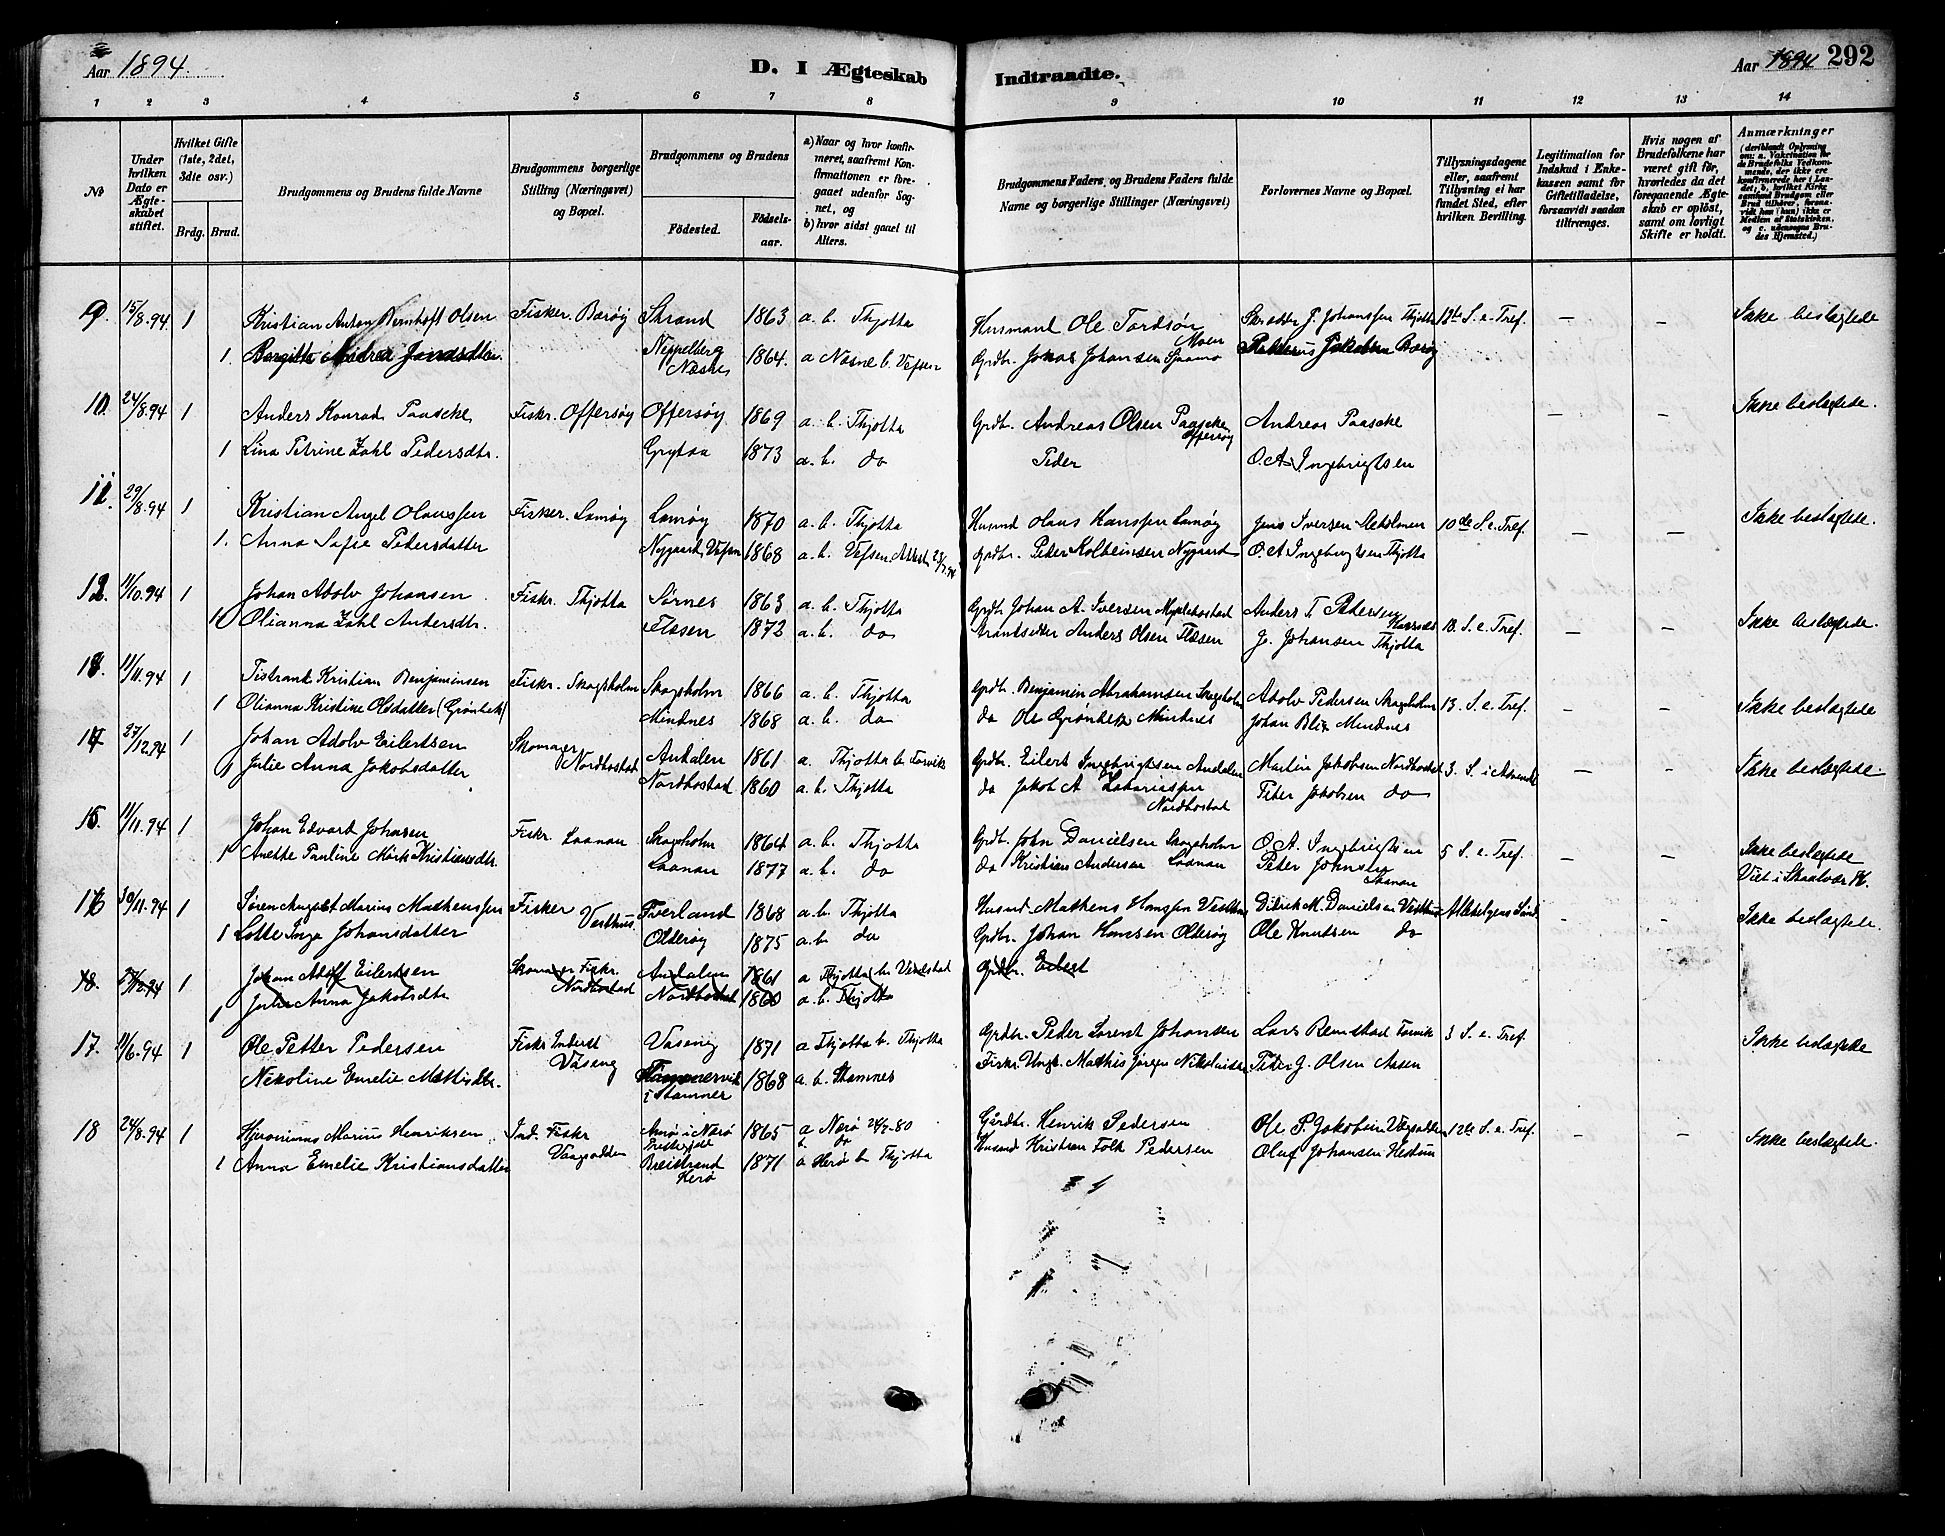 Aar 1894.
D. I Ægteskab Indtraadte.
Aar 1894 292
1 2 3 4 5 6 7 8 9 10 11 12 13 14
No
Under hvilken Dato er Ægteskabet stiftet.
Hvilket Gifte (1ste, 2det, 3die osv.)
Brdg. Brud.
Brudgommens og Brudens fulde Navne
Brudgommens borgerlige Stilling (Næringsvei) og Bopæl.
Brudgommens og Brudens
Födested.
Födselsaar.
a) Naar og hvor konfirmeret, saafremt Konfirmationen er foregaaet udenfor Sognet, og b) hvor sidst gaaet til Alters.
Brudgommens Faders, og Brudens Faders fulde Navne og borgerlige Stillinger (Næringsvei)
Forlovernes Navne og Bopæl.
Tillysningsdagene eller, saafremt Tillysning ei har fundet Sted, efter hvilken Bevilling.
Legitimation for Indskud i Enkekassen samt for Giftetilladelse, forsaavidt saadan tiltrænges.
Hvis nogen af Brudefolkene har været gift før, hvorledes da det foregaaende Ægteskab er oplöst, samt om lovligt Skifte er holdt.
Anmærkninger (deriblandt Oplysning om: a. Vakcination for de Brudefolks Vedkommende, der ikke ere konfirmerede her i Landet; b. hvilket Kirkesamfund Brudgom eller Brud tilhører, forsaavidt han (hun) ikke er Medlem af Statskirken, og c. udensogns Brudes Hjemsted.)
9. 15/8.94 1 Kristian Anton Bernhoft Olsen Fisker. Barøy Strand 1863 a. b. Thjotta Husmand Ole Tordsøn Moen J. Johanssen Thjotta S. e. Tref. — — Ikke beslægtede
1. Bergitte Andrea Jonasdtter. Neppelberg Næsne 1864. a Næsne b. Vefsen Grdbr. Jonas Johansen Jakobsen Barøy
10. 24/8.94 1 Anders Konrad Paascke Fiskr. Offersøy Offersøy 1869 a. b. Thjotta Grdbr. Andreas Olsen Paascke Offersøy Andreas Paascke — — Ikke beslægtede.
1 Lina Petrine Zahl Pedersdtr. Grytaa 1873 a. b. do Peder O. A. Ingebrigtsen
11. 29/8.94 1 Kristian Angel Olaussen Fisker. Lamøy Lamøy 1870 a. b. Thjotta Husmd Olaus Hanssen Lamøy Jens Iversen Stokholmen 10de S. e. Tref. — — Ikke beslægtede.
1. Anna Sofie Pedersdatter Nygaard, Vefsn 1868 a. b. Vefsen. Attest Grdbr. Peder Kolbeinsen Nygaard O. A. Ingebrigtsen Thjotta
12. 11/10.94 1 Johan Adolv Johansen Fiskr. Thjotta Sørnes 1863 a. b. Thjotta Grdbr Johan A. Iversen Anders T. Pedersen 18. S. e. Tref. — — Ikke beslægtede.
Olianna Zahl Andersdtr. Flæsen 1872 a. b. do Strandsidder Anders Olsen Flæsen J. Johansen Thjotta
13. 11/11.94 1 Tistrank Kristian Benjaminsen Fiskr. Skogsholm Skogsholm 1866 a. b. Thjotta Grdbr. Benjamin Abrahamsen Skogsholm Adolv Pedersen Skogsholm 13. S. e. Tref. — — Ikke beslægtede
1 Olianna Kristine Olsdatter (Grønbek) Mindnes 1868 a. b. do do Ole Grønbek Mindnes Johan Blix Mindnes
14 27/12.94 1 Johan Adolv Eilertsen Skomager Nordbostad Andalen 1861 a. Thjotta b. Forvik Grdbr. Eilert Ingebrigtsen Andalen Martin Jakobsen Nordbostad 3. S. i Advent — — Ikke beslægtede.
1 Julie Anna Jakobsdatter Nordbostad 1860 a. b. Thjotta do Jakob A Zakariassen Nordbostad Peter Jakobsen do
15. 11/11.94 1 Johan Edvard Johnsen Fiskr. Laanan Skogsholm 1864 a. b. Thjotta Grdbr. John Danielsen Skogsholm O. A. Ingebrigtsen 5 S. e. Tref. — — Ikke beslægtede
1 Anette Pauline Mørk Kristiansdtr. Laanan 1877 a. b. do do Kristian Andersen Laanan Peter Johnsen Laanan Viet i Skaalvær K.
16 30/11.94 1 Søren August Marius Mathenssen Fisker Vesthus. Tverland 1868 a. b. Thjotta Husmd. Mathens Hanssen Vesthus Didrik M. Danielsen Vesthus Allehelgens Sønd — — Ikke beslægtede.
1 Lotte Inga Johansdatter Olderøy 1875 a. b. do Grdbr. Johan Hansen Olderøy Ole Knudsen do
18. 27/12.94 1 Johan Adolf Eilertsen Skomager Fiskr. Nordbostad Andalen 1861 a Thjotta b. Grdbr. Eilert
1 Julie Anna Jakobsdtr Nordbostad 1860 a. b. Thjotta
17. 11/6.94 1 Ole Petter Pedersen Fiskr Inderst Våseng Våseng 1871 a Thjotta b. Thjotta Grdbr. Peder Lorents Johansen Lars Remstad Forvik 3 S. e. Tref. Ikke beslægtede
Nikoline Emelie Mathisdtr. i Stamnes 1868 a. b. Stamnes Fiskr. Ungk. Mathis Jørgen Peder J. Olsen Aasen
18 24/8.94 1 Hjeronimus Marius Henriksen Ind. Fiskr Vaagodden Nærø 1865 a Nærø Gårdbr. Henrik Pedersen Ole P. Jakobsen Vaagodden 12te S. e. Tref. — — Ikke beslægtede.
1 Anna Emelie Kristiansdatter Breistrand Herø 1871 a Herø b Thjotta Husmd Kristian Falk Pedersen Oluf Johansen Hestun